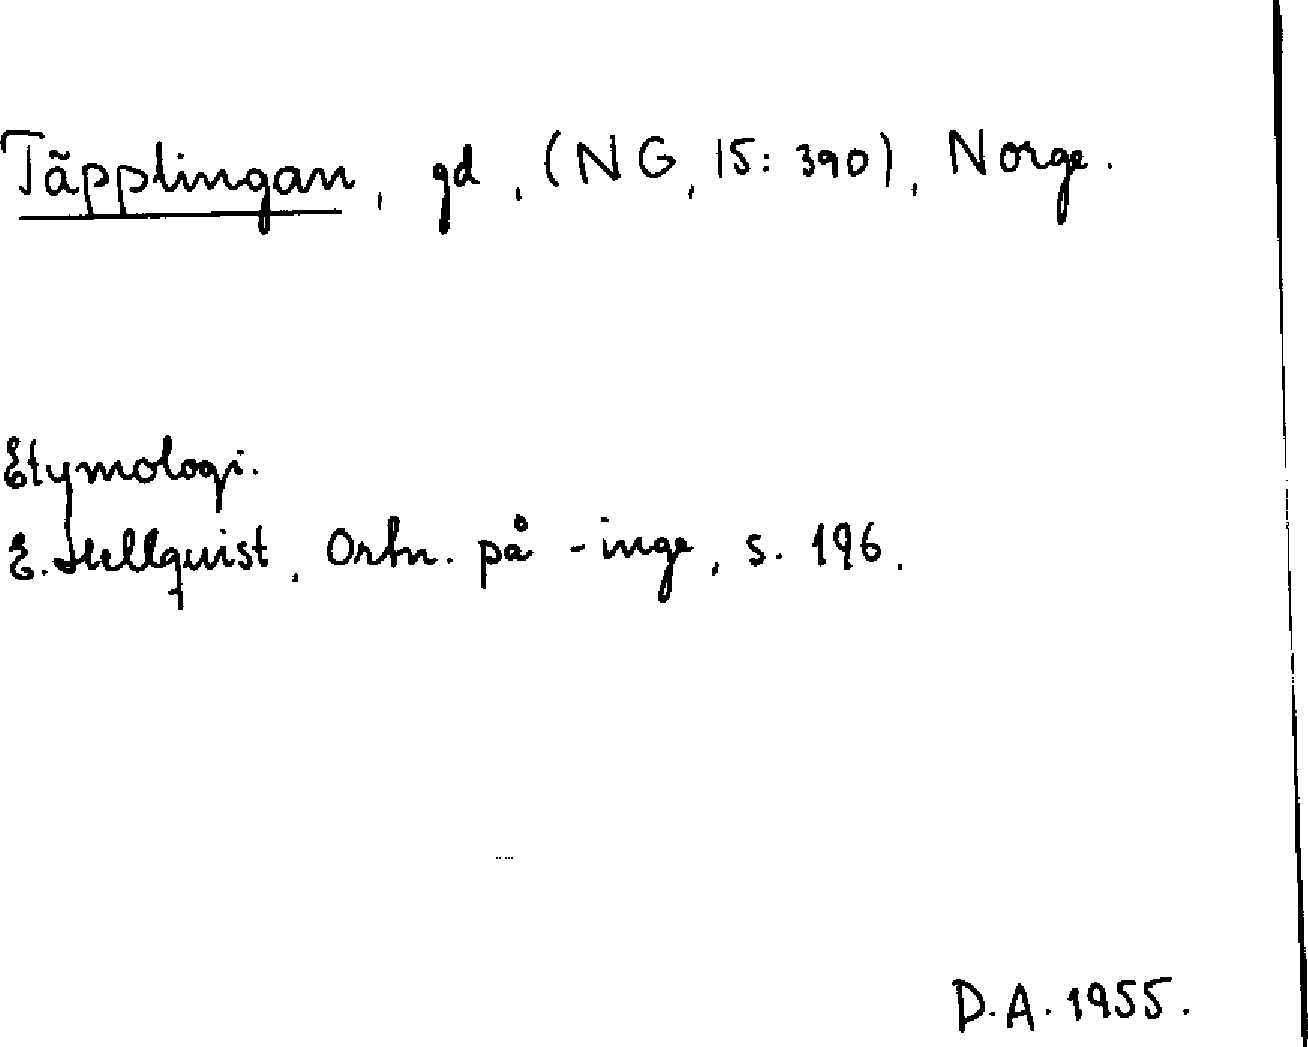 Täpplingan, gd, (NG, 15: 390), Norge.
Etymologi.
E. Hellquist, Ortn. på -inge, s. 196.
D.A. 1955.